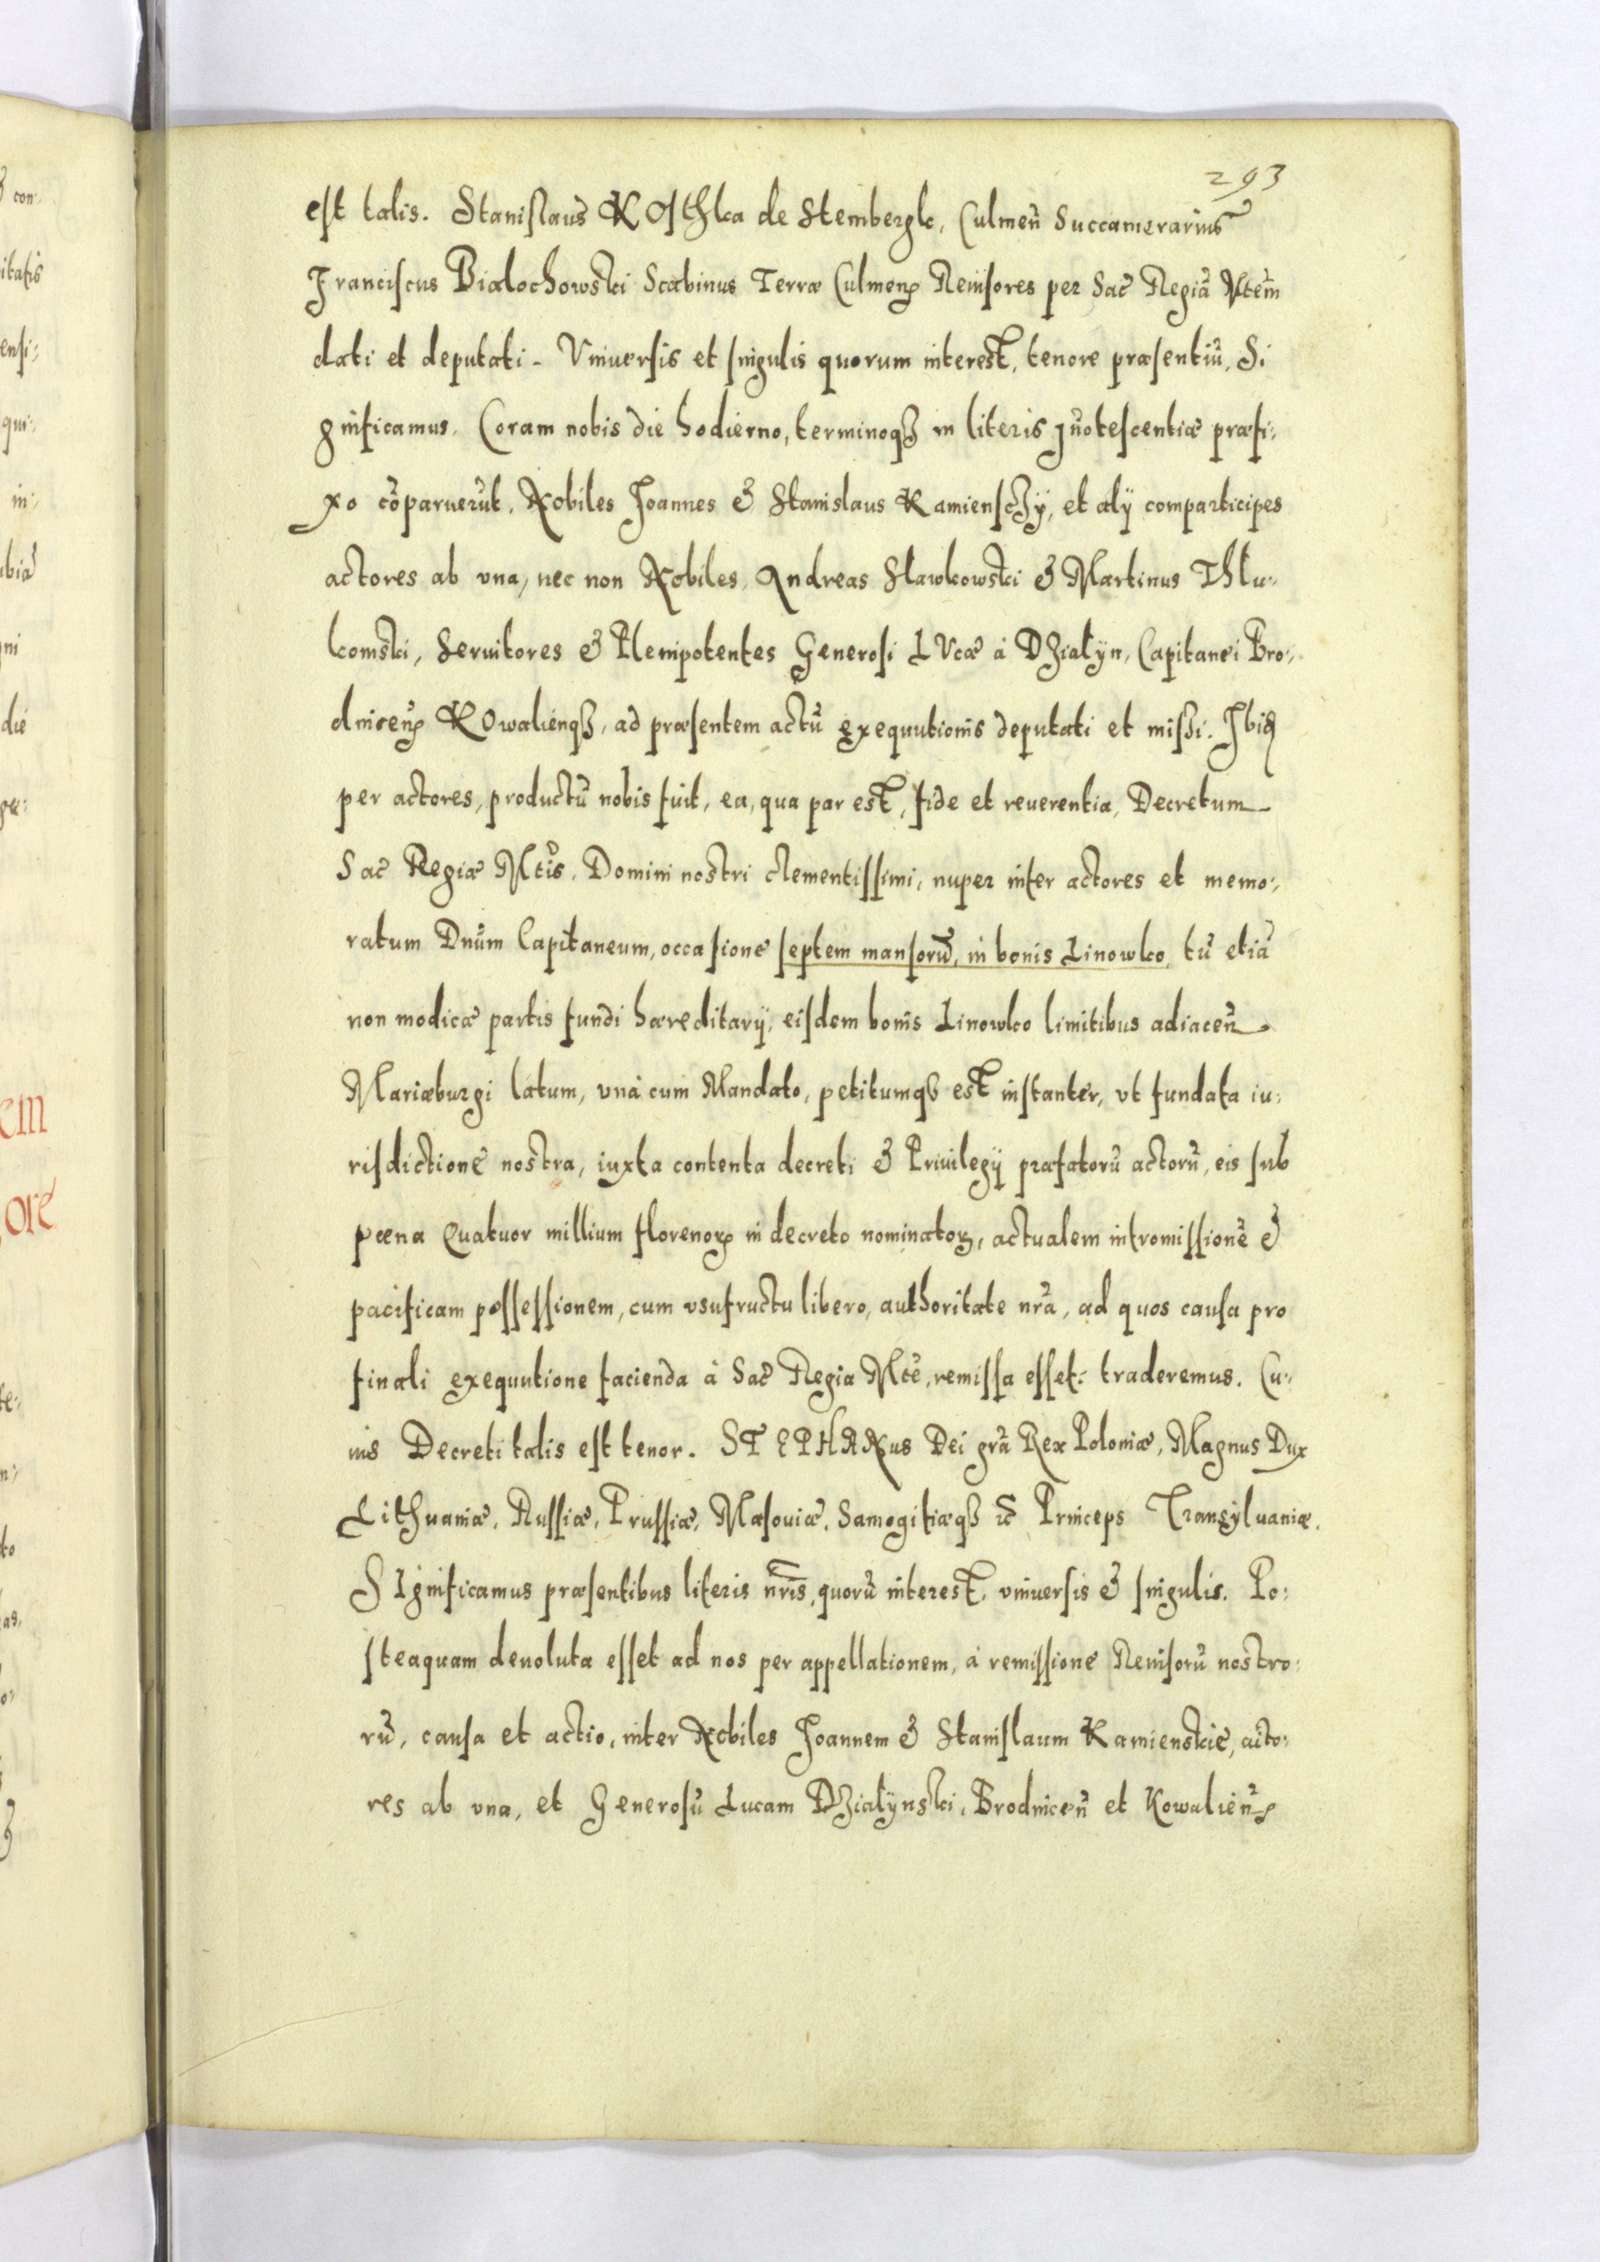 293
est talis. Stanislaus KOsthka de Stembergk, Culmeñ Succamerarius
Franciscus Bialochowski Scabinus Terræ Culmeñ Reuisores per Sac̃ Regiã Mtem̃
dati et deputati - Vniuersis et singulis quorum interest, tenore præsentiũ, Si
gnificamus. Coram nobis die hodierno, terminoqꝫ in literis Jñotescentiæ præfi:
xo cõparuerũt, Nobiles Joannes & Stanislaus Kamienscÿ, et alÿ comparticipes
actores ab vna, nec non Nobiles, Andreas Slawkowski & Martinus Thlu:
komski, Seruitores & Plenipotentes Generosi LVcæ à Dzialÿn, Capitanei Bro:
dniceñ KOwalienqꝫ, ad præsentem actũ exequutionis deputati et missi. Ibidẽ
per actores, productũ nobis fuit, ea, qua par est, fide et reuerentia, Decretum
Sac̃ Regiæ Mtis̃, Domini nostri clementissimi, nuper inter actores et memo:
ratum Dnũm Capitaneum, occasione septem mansorũ, in bonis Linowko, tũ etiã
non modicæ partis fundi hæreditarÿ, eisdem bonis Linowko limitibus adiaceñ
Mariæburgi latum, vnà cum Mandato, petitumqꝫ est instanter, vt fundata iu:
risdictione nostra, iuxta contenta decreti & Priuilegÿ præfatorũ actorũ, eis sub
pœna Quatuor millium florenoꝝ in decreto nominatoꝝ, actualem intromissionẽ &
pacificam possessionem, cum vsufructu libero, authoritate nrã, ad quos causa pro
finali exequutione facienda à Sac̃ Regia Mtẽ, remissa esset: traderemus. Cu:
ius Decreti talis est tenor. STEPHANus Dei grã Rex Poloniæ, Magnus Dux
Lithuaniæ, Russiæ, Prussiæ, Masouiæ, Samogitiæqꝫ ꝛc̃ Princeps Transyluaniæ.
SIgnificamus præsentibus literis nris̃, quorũ interest, vniuersis & singulis. Po:
steaquam deuoluta esset ad nos per appellationem, à remissione Reuisorũ nostro:
rũ, causa et actio, inter Nobiles Joannem & Stanislaum Kamienskie, acto:
res ab vna, et Generosũ Lucam Dzialÿnski, Brodniceñ et Kowalieñ